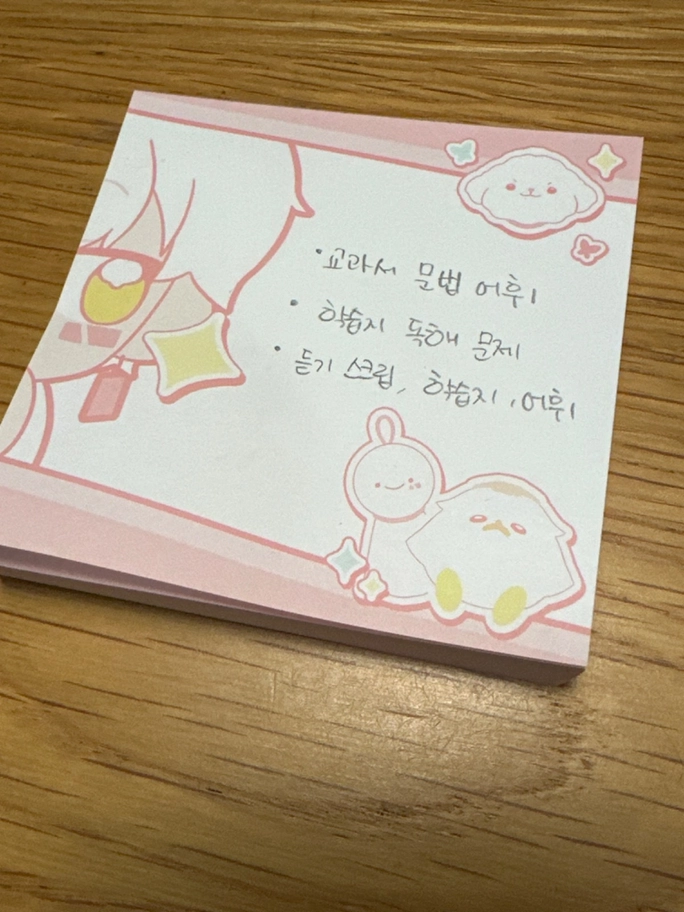 · 교과서 문법 어휘
· 학습지 독해 문제
· 듣기 스크립, 학습지, 어휘